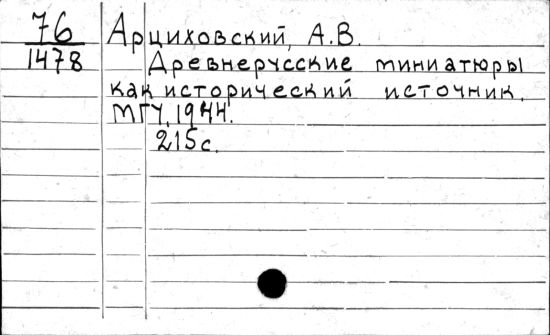 76 Арциховский, А.В.
1478 Древнерусские миниатюры
как исторический источник.
МГУ, 1944.
215с.